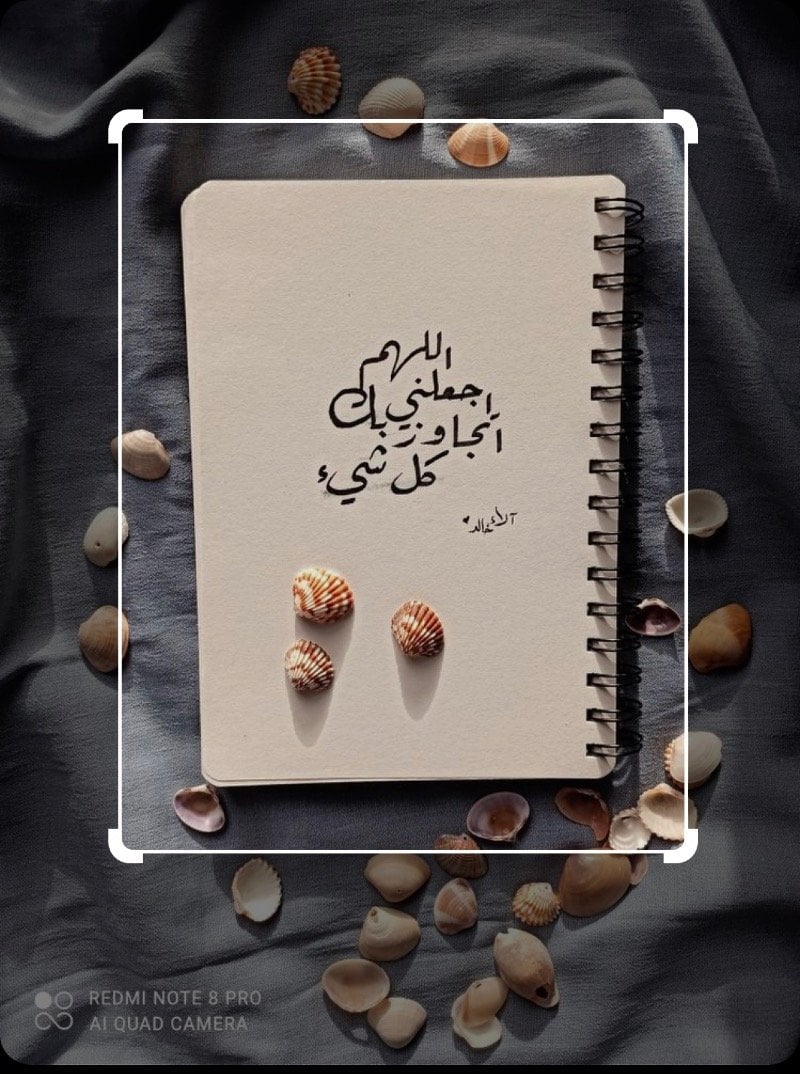 اللهم
اجعلني
أتجاوز بك
كل شيء
آلاء خالد
REDMI NOTE 8 PRO
AI QUAD CAMERA